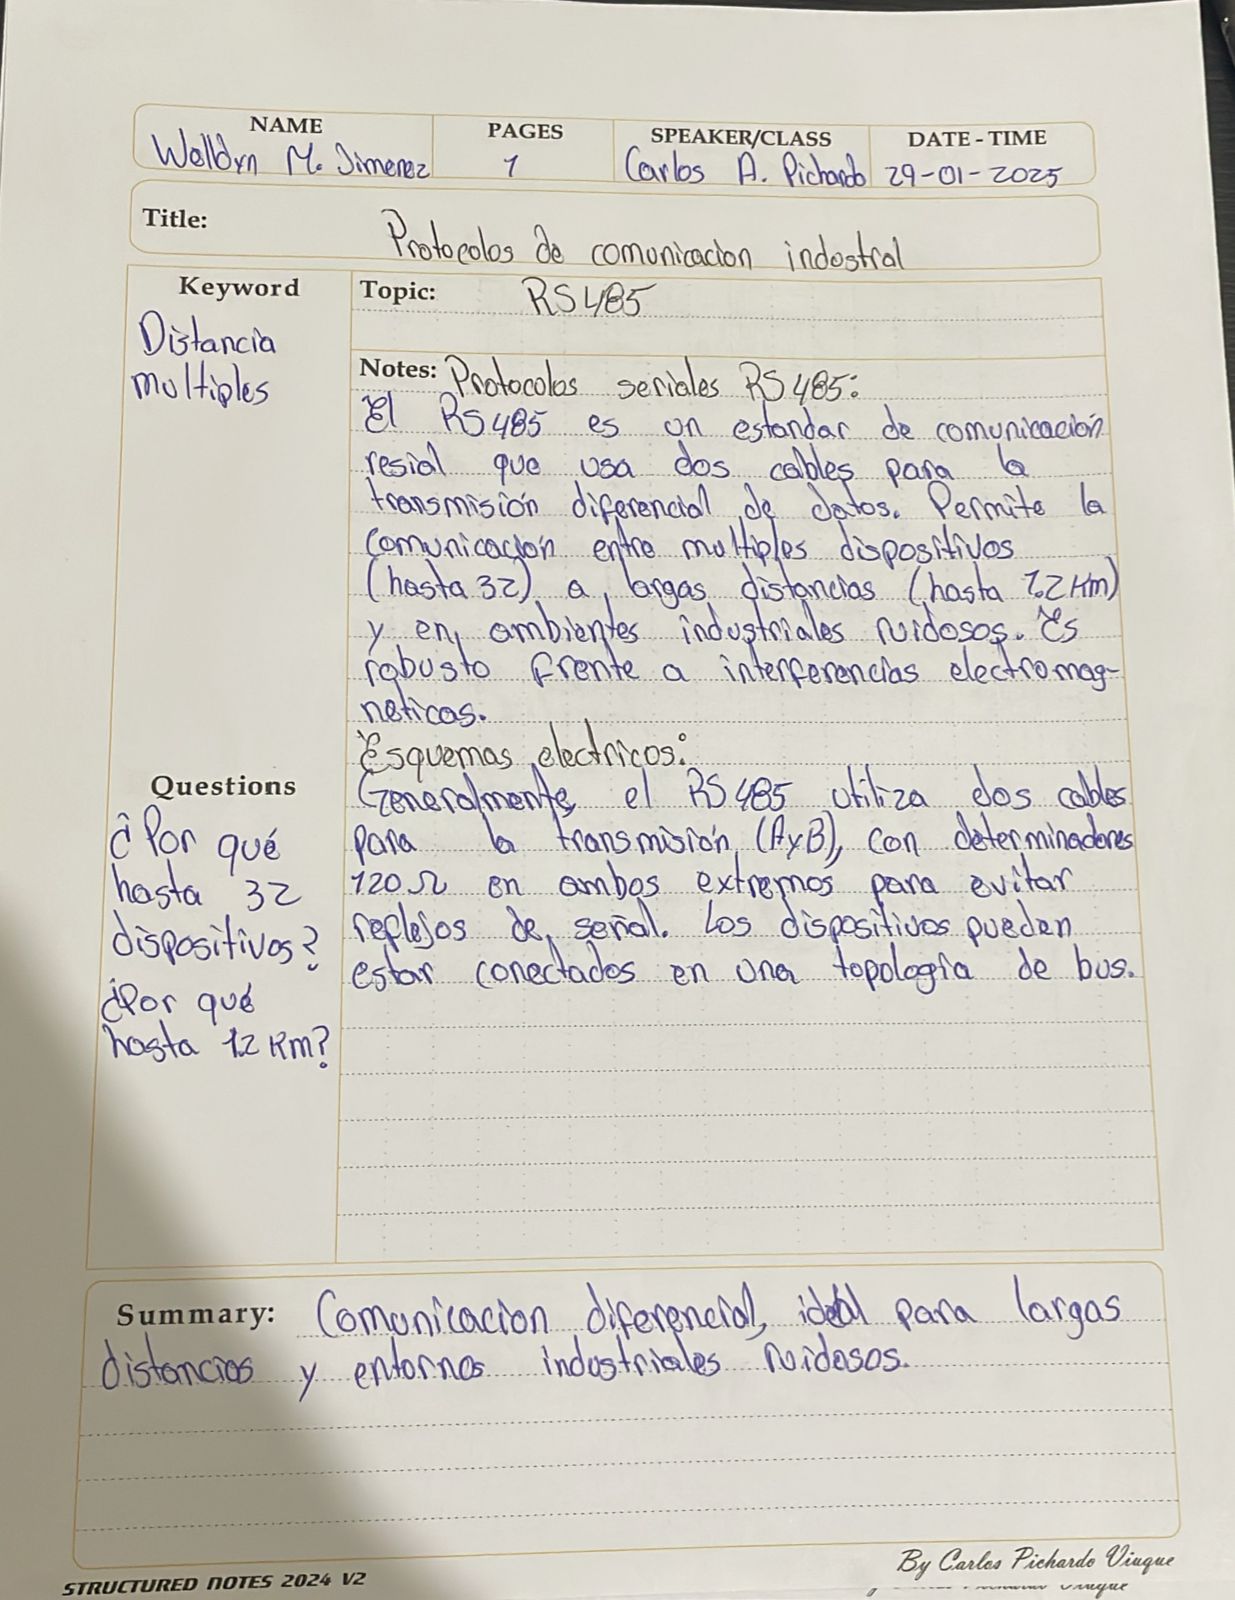 NAME PAGES SPEAKER/CLASS DATE - TIME
Welldyn M. Jimenez 1 Carlos A. Pichardo 29-01-2025
Title: Protocolos de comunicacion indostral
Keyword
Distancia
multiples
Topic: RS485
Notes: Protocolos seriales RS485:
El RS485 es un estandar de comunicación
resial que usa dos cables para la
transmisión diferencial de datos. Permite la
comunicación entre multiples dispositivos
(hasta 32) a largas distancias (hasta 1.2 Km)
y en ambientes industriales ruidosos. Es
robusto frente a interferencias electromag-
neticas.
Esquemas electricos:
Generalmente, el RS485 utiliza dos cables
para la transmisión (AyB), con determinadores
120Ω en ambos extremos para evitar
reflejos de señal. Los dispositivos pueden
estar conectados en una topología de bus.
Questions
¿Por qué
hasta 32
dispositivos?
¿Por qué
hasta 1.2 Km?
Summary: Comunicacion diferencial, ideal para largas
distancias y entornos industriales ruidosos.
By Carlos Pichardo Viuque
STRUCTURED NOTES 2024 V2